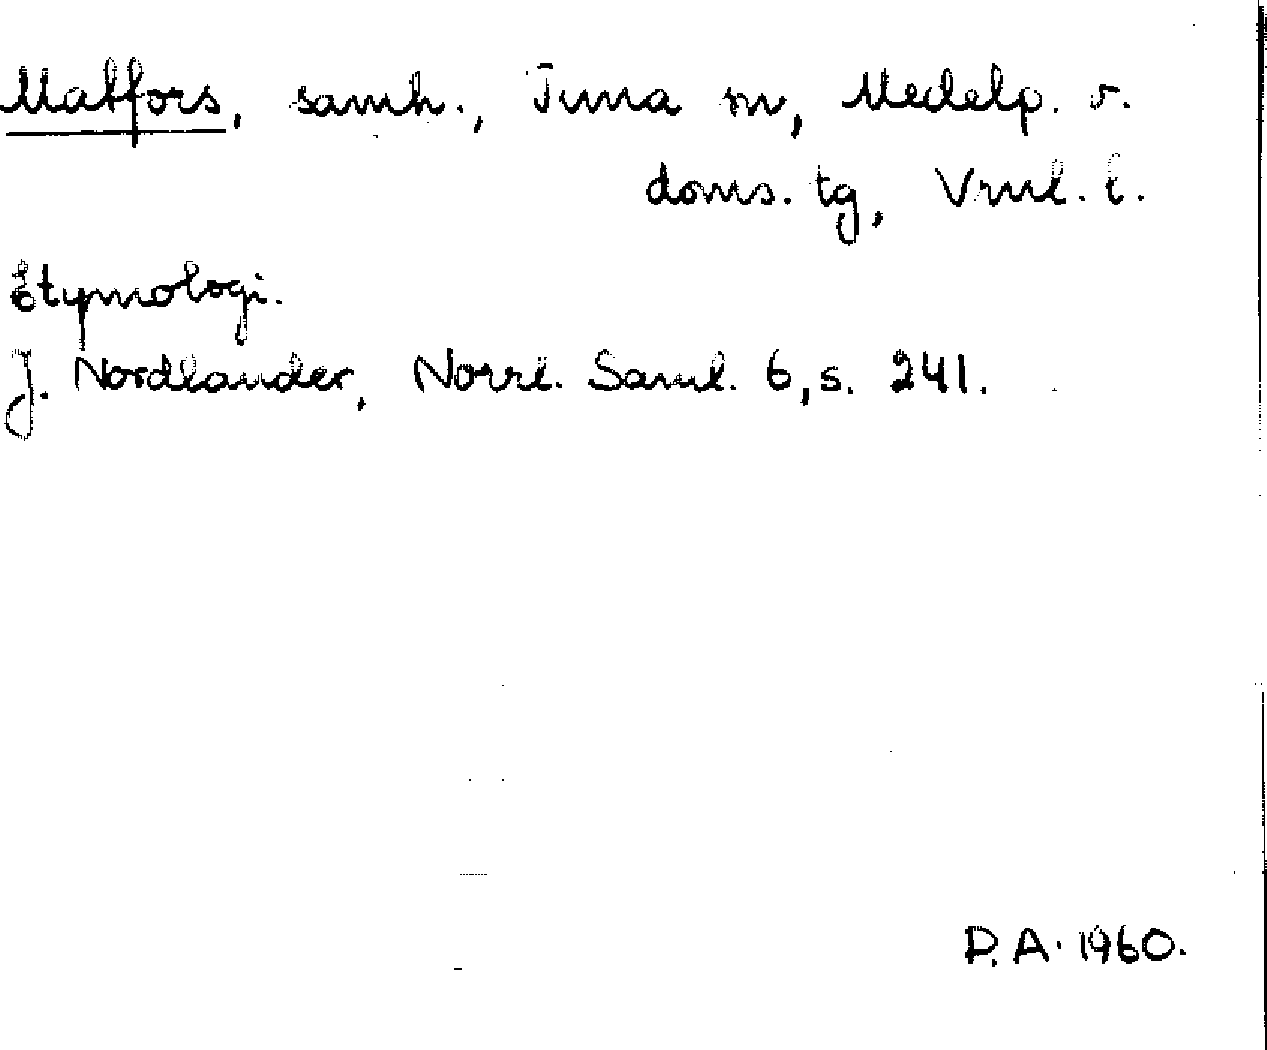 Matfors, samh., Tuna sn, Medelp. v.
doms. tg, Vrnl. l.
Etymologi.
J. Nordlander, Norrl. Saml. 6, s. 241.
P. A. 1960.